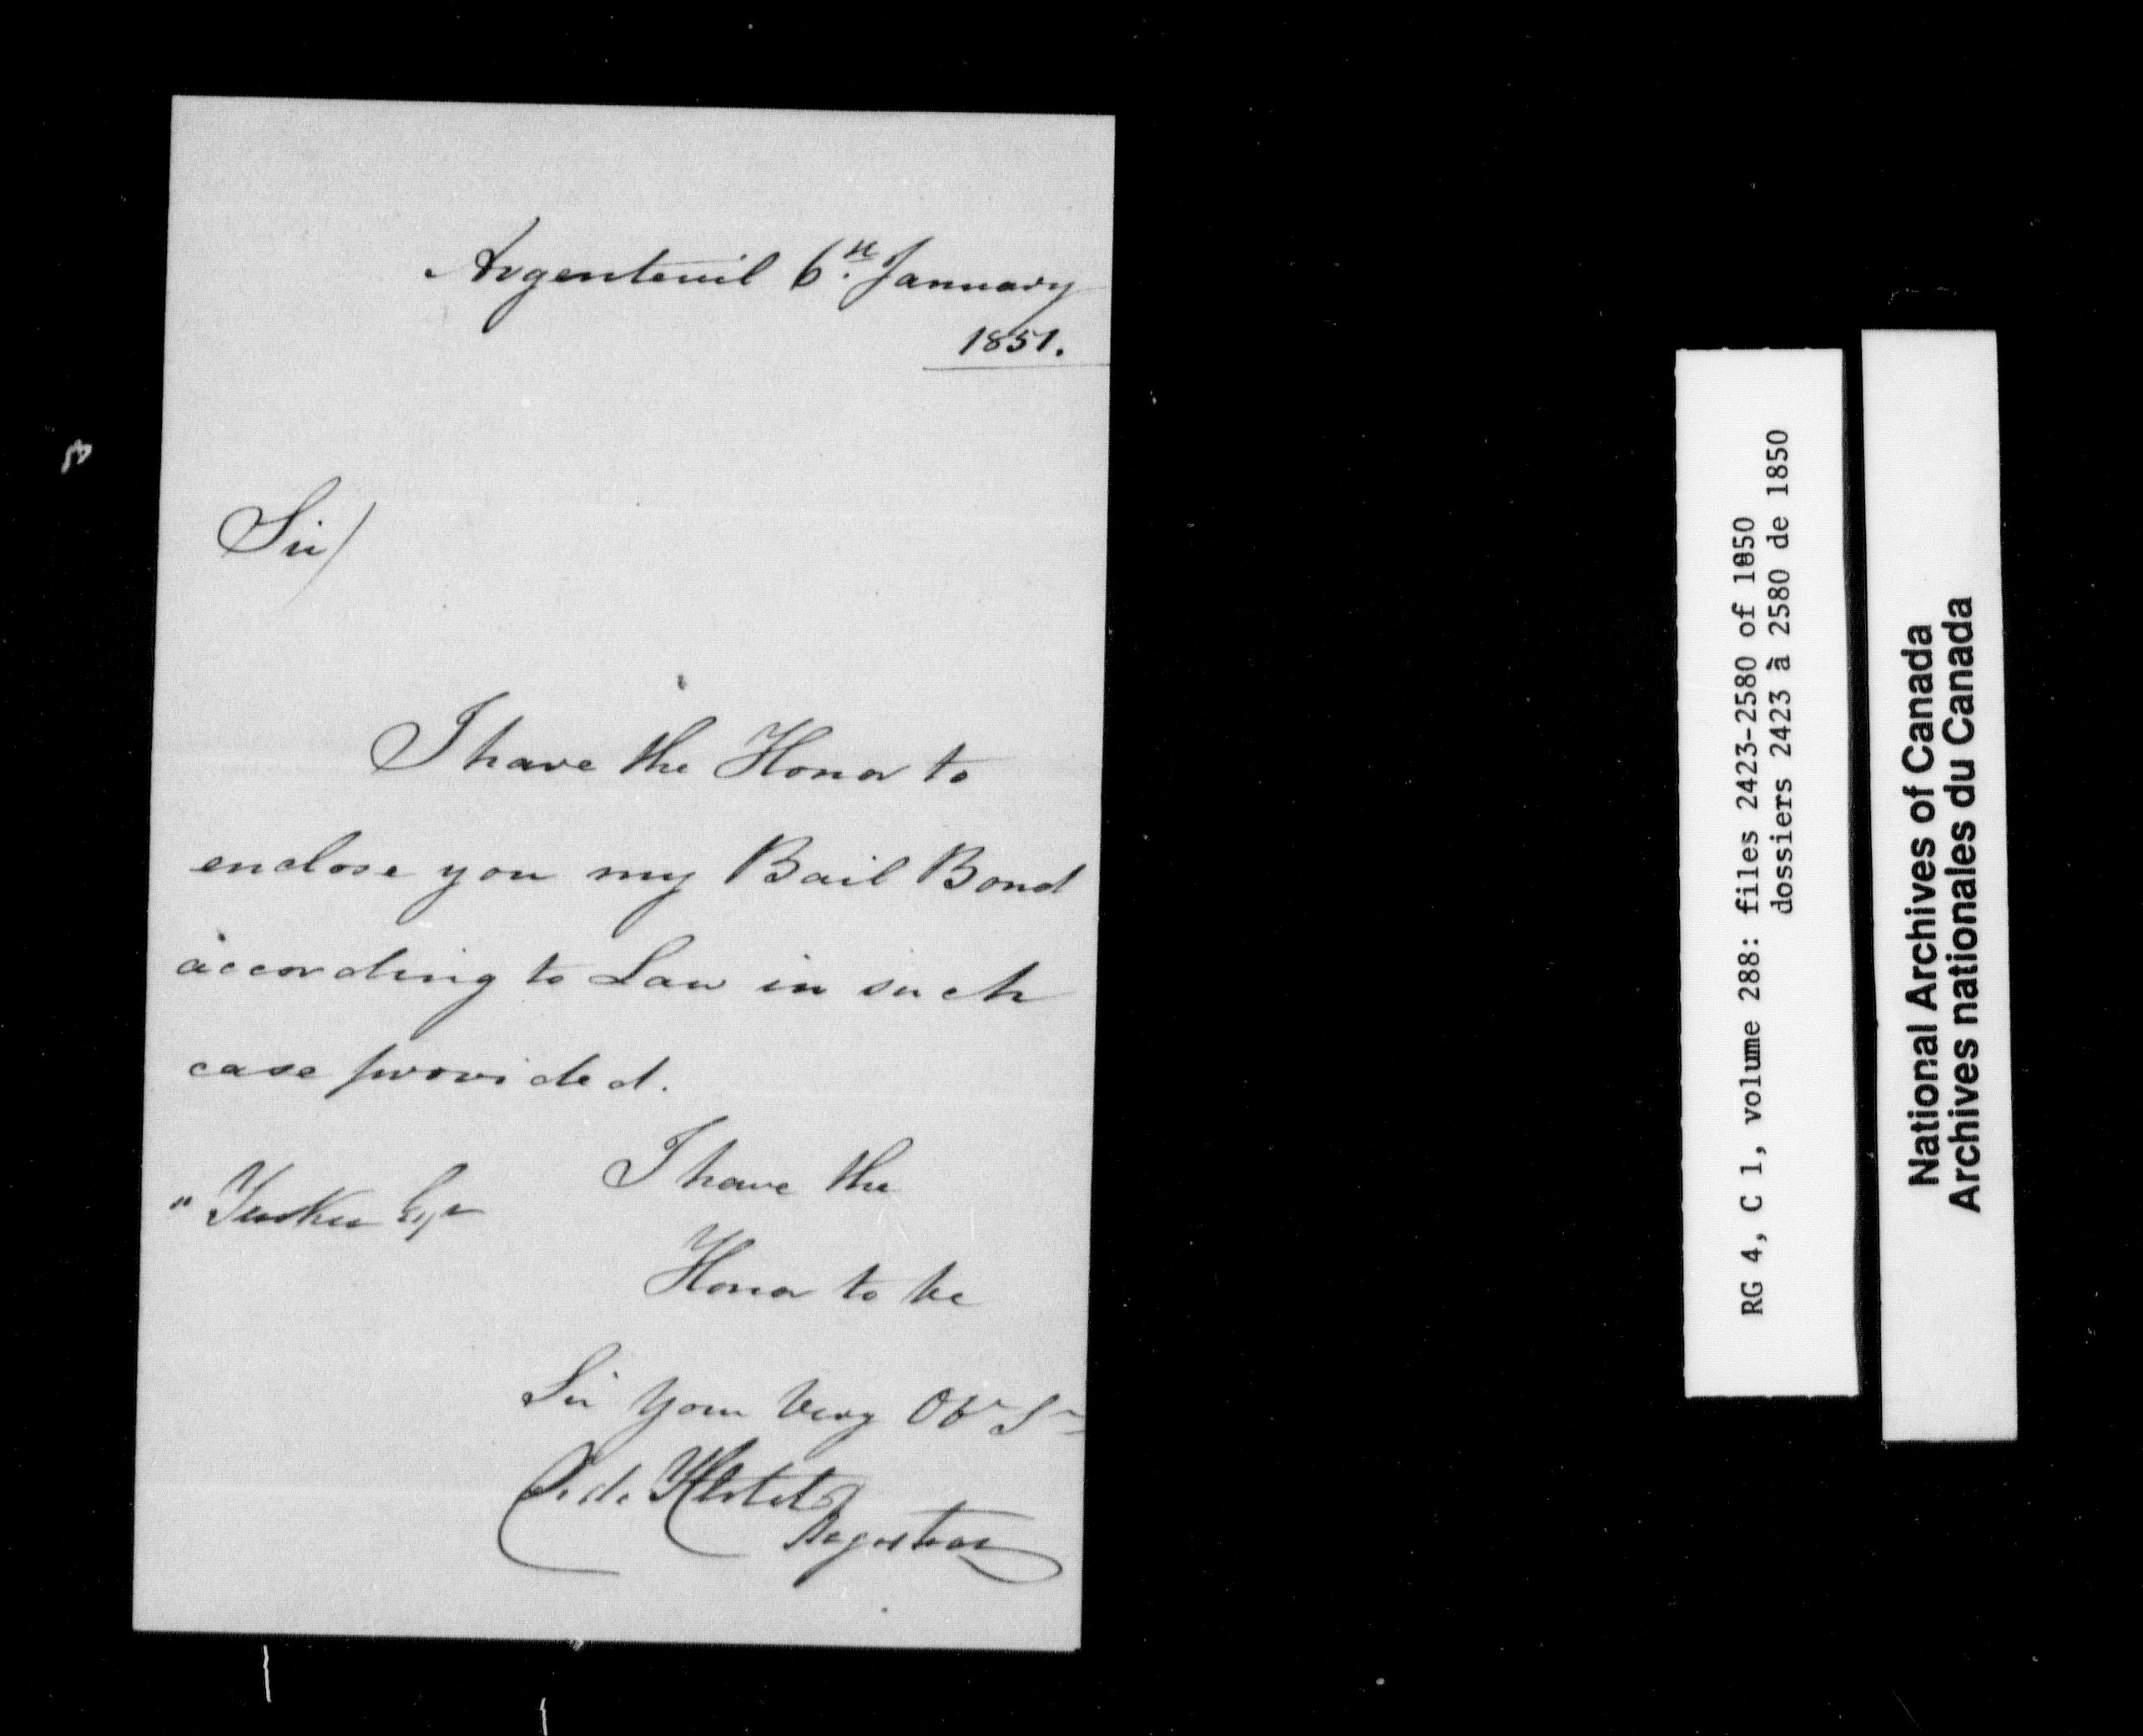 Argenteuil 6th January
1851.
Sir/
I have the Honor to
enclose you my Bail Bond
according to Law in such
case provided.
I have the
" Tucker Esqr
Honor to be
Sir Your Very Obt St
Registrar
RG 4, C 1, volume 288: files 2423-2580 of 1850
dossiers 2423 à 2580 de 1850
National Archives of Canada
Archives nationales du Canada